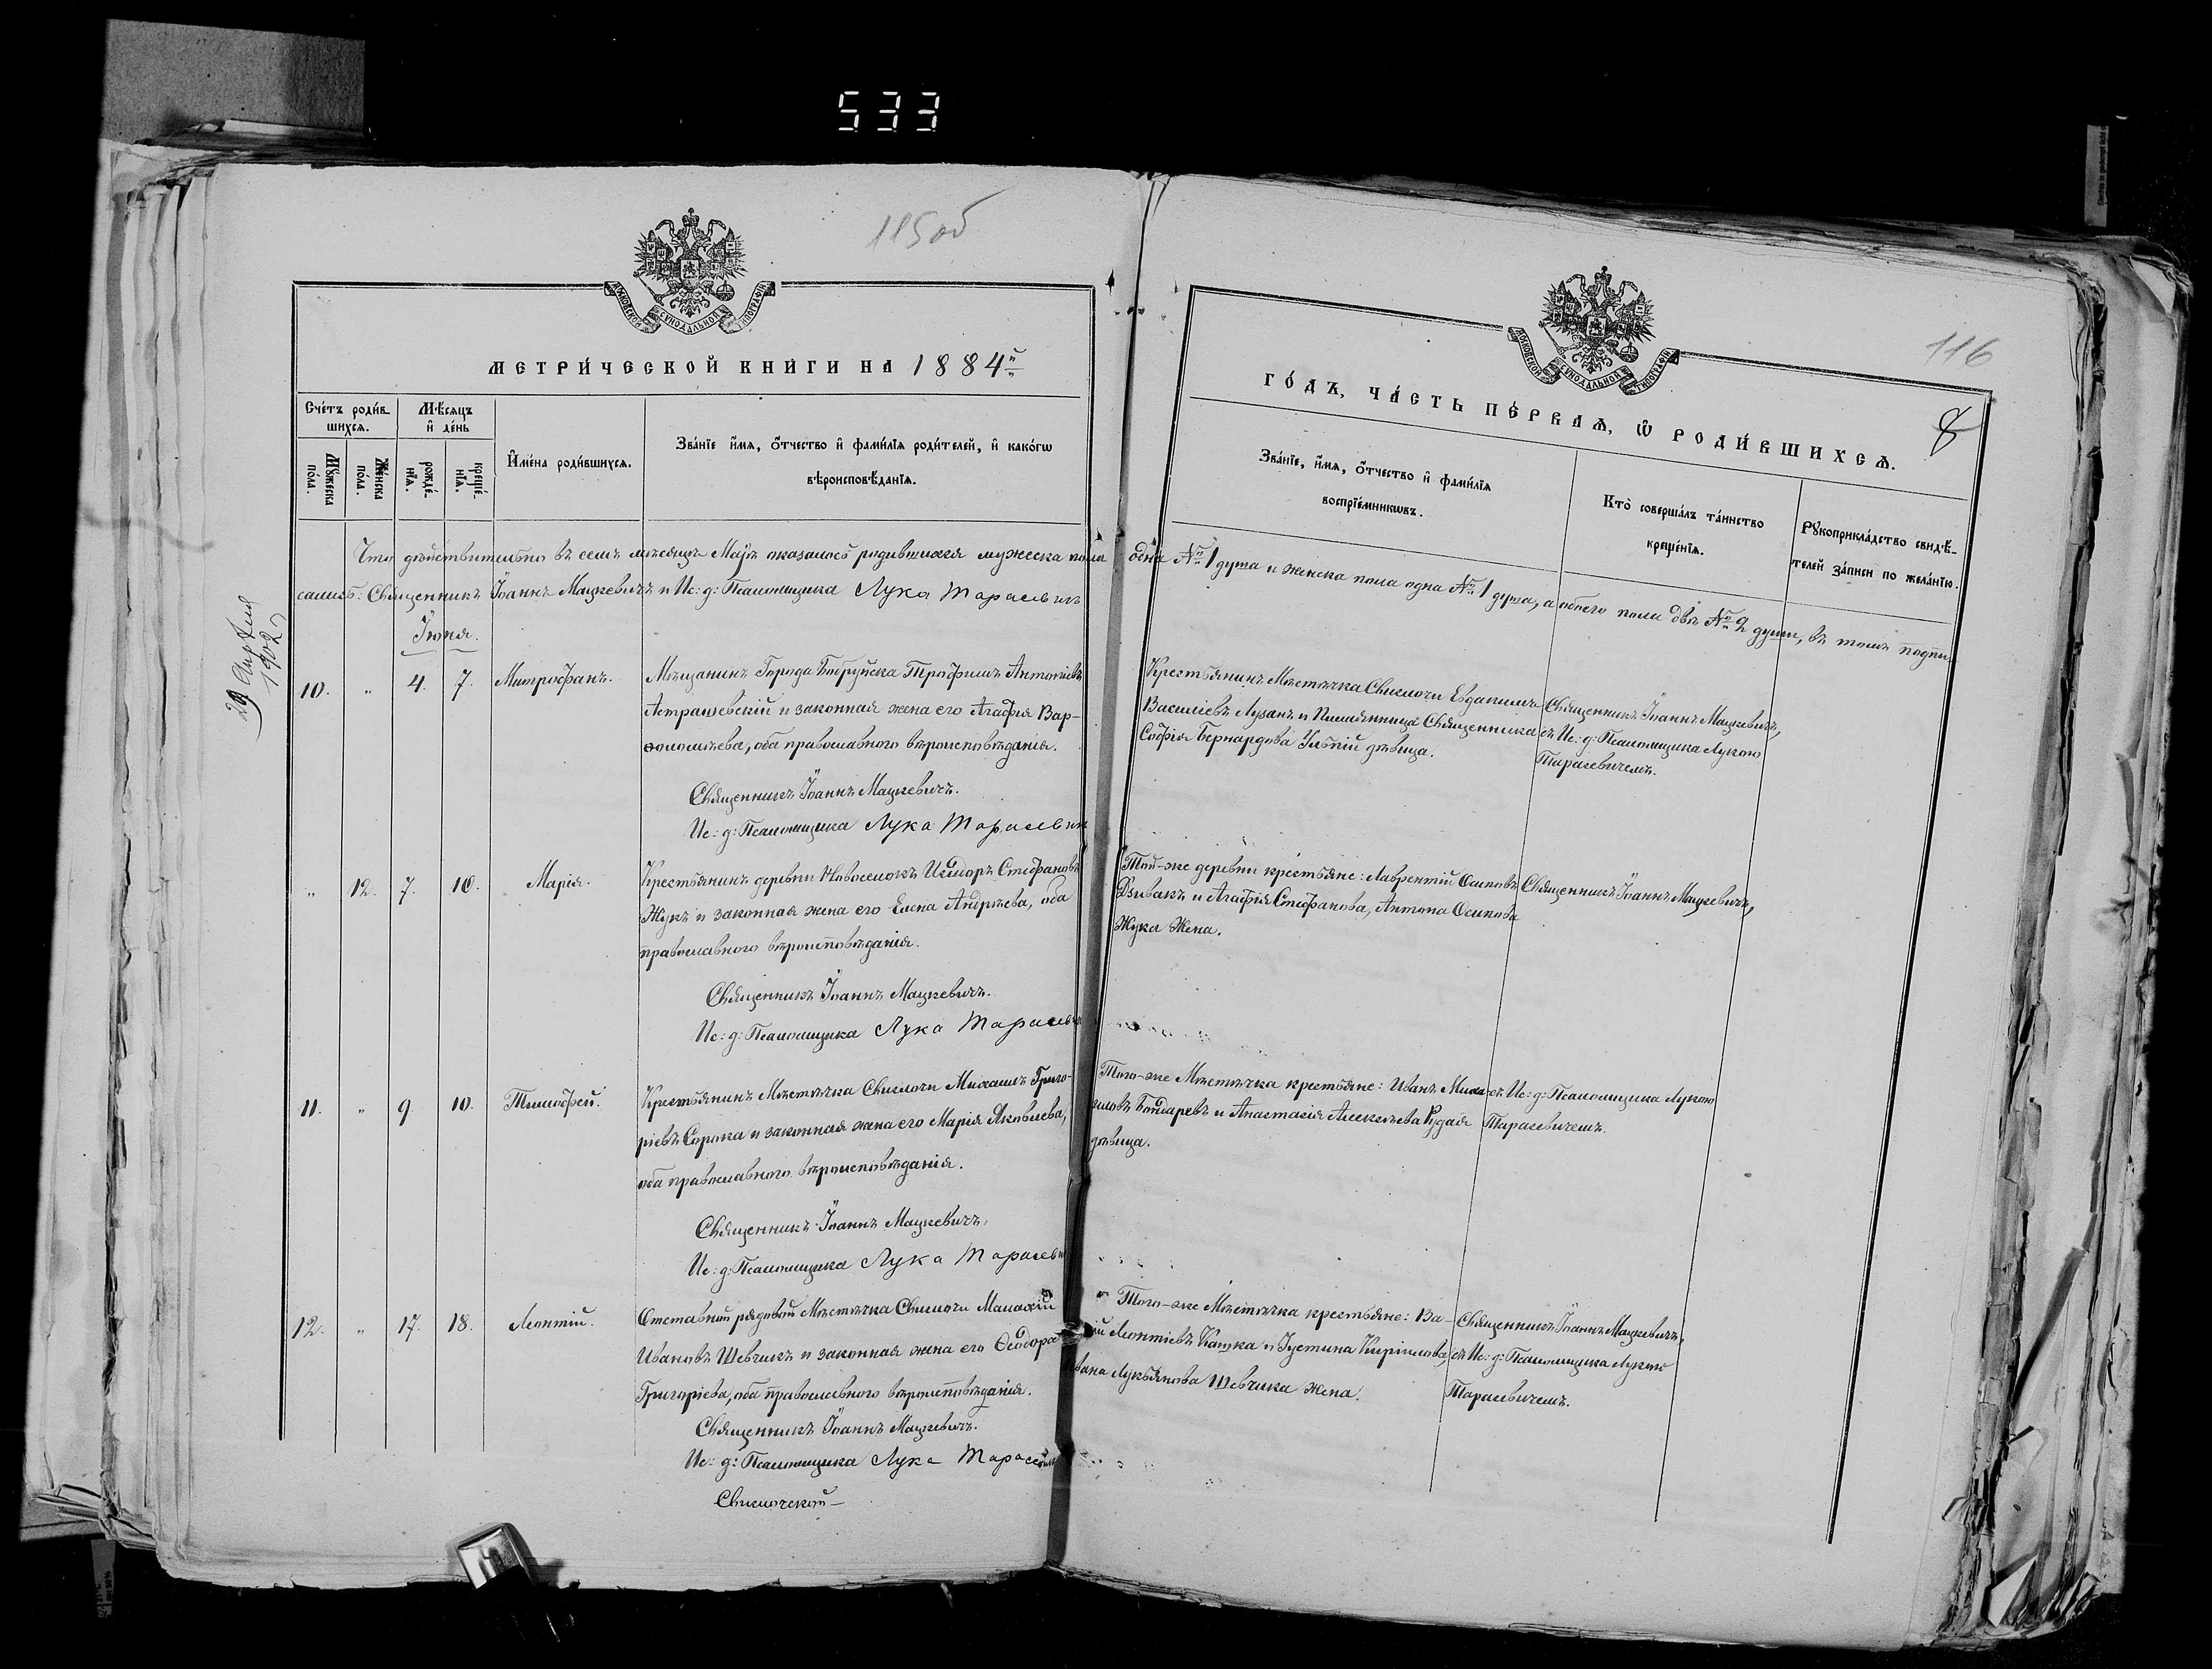 533
115об
МОСКОВСКОЙ СѴНОДАЛЬНОЙ ТИПОГРАФІИ
МЕТРИ́ЧЕСКОЙ КНИ́ГИ НА 1884й
Сче́тъ роди́в-
шихсѧ.
Мѣ́сѧцъ
и҆ де́нь
Мꙋ́жеска
по́ла.
Же́нска
по́ла.
рожде́-
нїѧ.
креще́-
нїѧ.
И҆мена̀ роди́вшихсѧ.
Зва́нїе и҆́мѧ, ѻ҆́тчество и҆ фами́лїѧ роди́телей, и҆ како́гѡ
вѣроисповѣ́данїѧ.
Что дѣйствительно въ семъ мѣсяцѣ Маѣ оказалось родившихся мужеска пола
сались: Священникъ Іоаннъ Мацкевичъ и Ис: д: Псаломщика Лука Тарасевич
29 Апрѣля
1902
Іюня.
10. " 4. 7. Митрофанъ.
Мѣщанинъ Города Бобруйска Трофимъ Антоніевъ
Астрашевскій и законная жена его Агафія Вар-
ѳоломѣева, оба православного вѣроисповѣданія.
Священникъ Іоаннъ Мацкевичъ.
Ис: д: Псаломщика Лука Тарасевич
" 12. 7. 10. Марія.
Крестьянинъ деревни Новоселокъ Исидоръ Стефановъ
Жукъ и законная жена его Елена Андрѣева, оба
православного вѣроисповѣданія.
Священникъ Іоаннъ Мацкевичъ.
Ис: д: Псаломщика Лука Тарасевич
11. " 9. 10. Тимофей.
Крестьянинъ Мѣстечка Свислочи Михаилъ Григо-
ріевъ Сорока и законная жена его Марія Яковлева,
оба православного вѣроисповѣданія.
Священникъ Іоаннъ Мацкевичъ,
Ис: д: Псаломщика Лука Тарасевич
12. " 17. 18. Леонтій.
Отставной рядовой Мѣстечка Свислочи Малахій
Ивановъ Шевчикъ и законная жена его Ѳеодора
Григоріева, оба православного вѣроисповѣданія.
Священникъ Іоаннъ Мацкевичъ.
Ис: д: Псаломщика Лука Тарасевич
Свислочской
116
8
МОСКОВСКОЙ СѴНОДАЛЬНОЙ ТИПОГРАФІИ
ГО́ДЪ, ЧА́СТЬ ПЕ́РВАѦ, Ѽ РОДИ́ВШИХСѦ.
Зва́нїе, и҆́мѧ, ѻ҆́тчество и҆ фами́лїѧ
воспрїе́мникѡвъ.
Кто̀ соверша́лъ та́инство
креще́нїѧ.
Рꙋкоприкла́дство свидѣ́-
телей за́писи по жела́нїю.
одна № 1 душа и женска пола одна № 1 душа, а обоего пола двѣ № 2 души, въ томъ подпи-
Крестьянинъ Мѣстечка Свислочи Евдакимъ
Василіевъ Лузанъ и Племянница Священника
Софія Бернардова дѣвица.
Священникъ Іоаннъ Мацкевичъ,
съ Ис: д: Псаломщика Лукою
Тарасевичемъ.
Той-же деревни крестьяне: Лаврентій Осиповъ
Дзивакъ и Агафія Стефанова, Антона Осипова
Жука Жена.
Священникъ Іоаннъ Мацкевичъ,
Того-же Мѣстечка крестьяне: Иванъ Миха-
иловъ Бондаревъ и Анастасія Алексѣева Рудая
дѣвица.
съ Ис: д: Псаломщика Лукою
Тарасевичемъ.
Того-же Мѣстечка крестьяне: Ва-
ій Леонтіевъ Кашка и Іустина Кирилова,
вана Лукьянова Шевчика Жена.
Священникъ Іоаннъ Мацкевичъ,
съ Ис: д: Псаломщика Лукою
Тарасевичемъ.